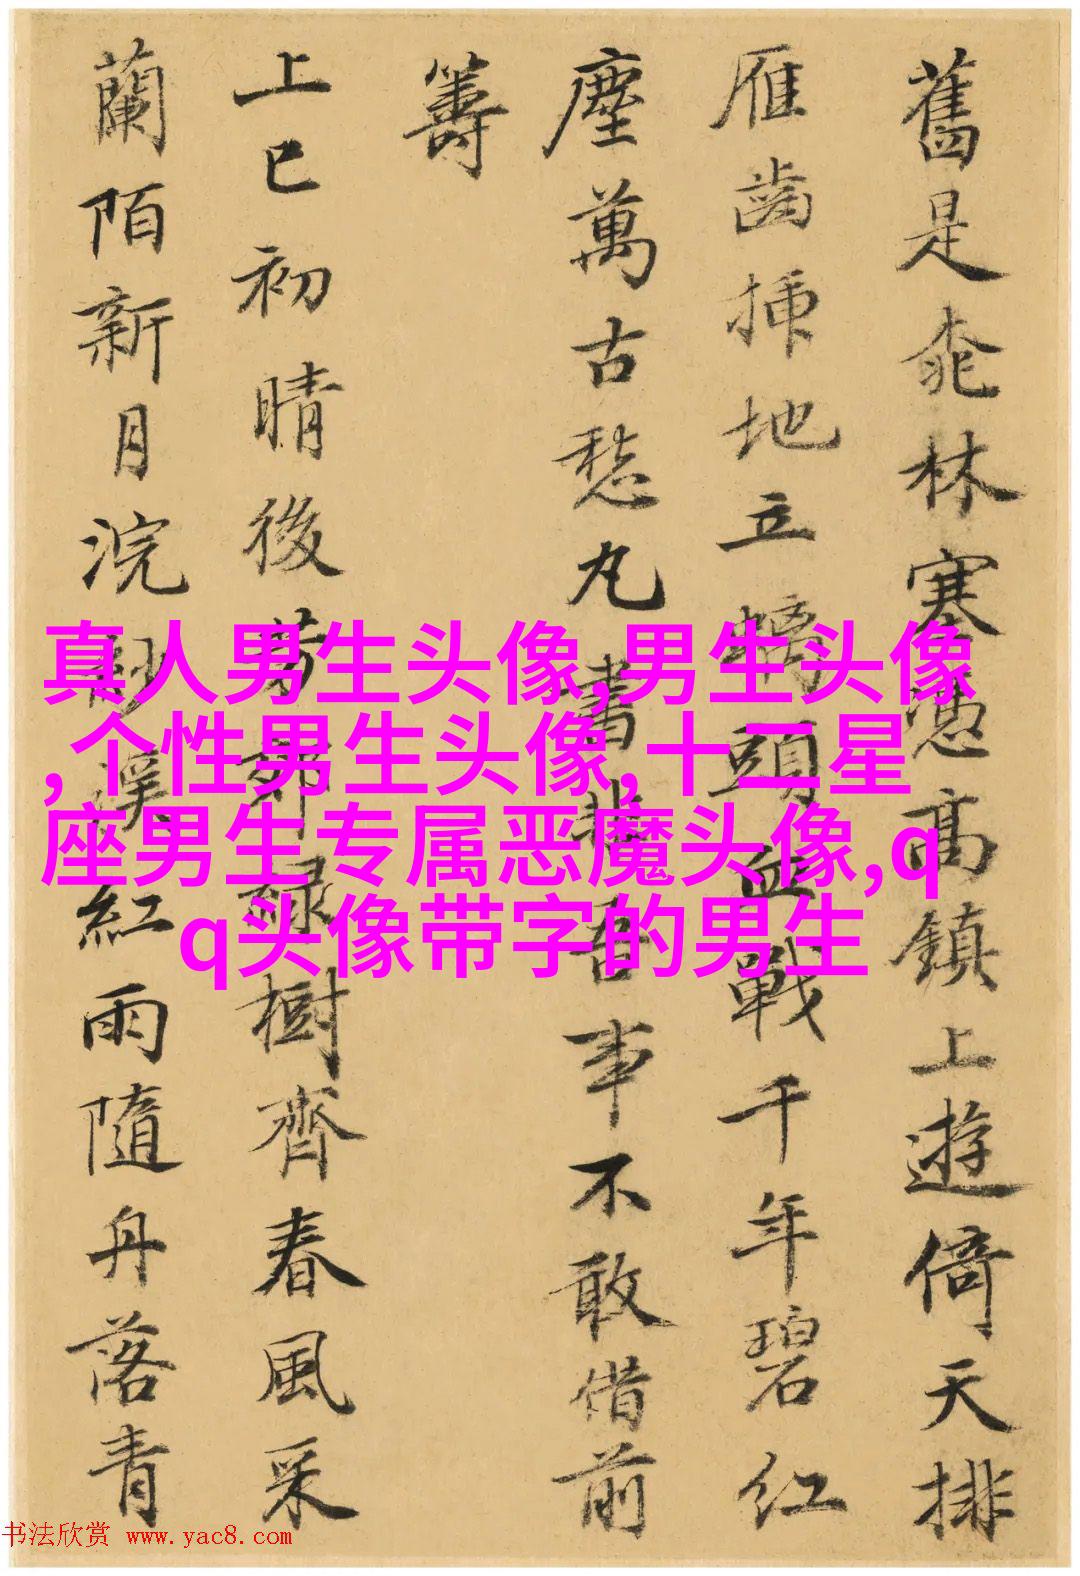 舊是林塞高鎮上遊倚天排
雁齒插地立螭頭血戰千年碧紅
塵萬古愁丸書非吾事不敢借前
籌
上巳初晴後芳郊綠樹齊春風采
蘭陌新月浣紗溪紅雨隨舟落青
真人男生头像,男生头像
,个性男生头像,十二星
座男生专属恶魔头像,q
q头像带字的男生
书法欣赏 www.yac8.com